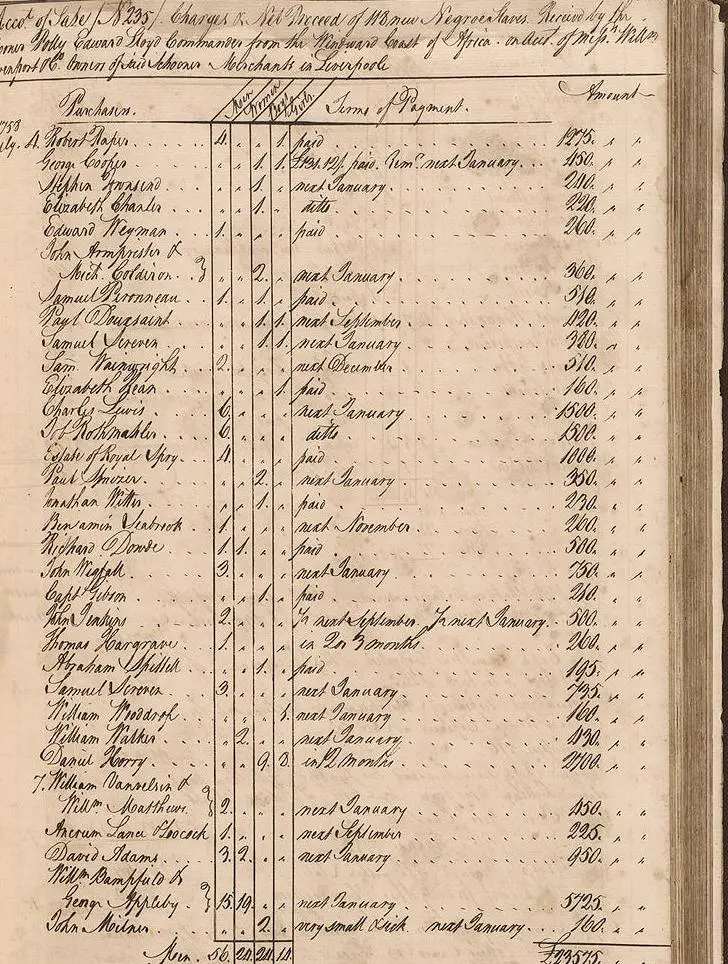 Accot. of Sale / N 235 / Charges & Net Proceed of 113 new Negroe Slaves. Receivd by the
Polly Edward Lloyd Commander from the Windward Coast of Africa. on Acct. of Messrs. Willm
Davenport & Co. Owners of said Schooner Merchants in Liverpoole
Purchasers. Men Women Boys Girls. Terms of Payment. Amount
1753
July. 4. Robert Raper 4. „ „ 1. paid 1275. „ „
George Cooper „ „ 1. 1. £131.12/. paid. next January 450. „ „
Stephen Townsend „ „ 1. „ next January 240. „ „
Elizabeth Chanler „ „ 1. „ ditto 220. „ „
Edward Weyman 1. „ „ „ paid 260. „ „
John Armprister &
Mich. Coldiron „ „ 2. „ next January 360. „ „
Samuel Peronneau 1. „ 1. „ paid 510. „ „
Paul Douxsaint „ „ 1. 1. next September 420. „ „
Samuel Screven „ „ 1. 1. next January 380. „ „
Sam. Wainwright 2. „ „ „ next December 510. „ „
Elizabeth „ „ „ 1. paid 160. „ „
Charles Lewis 6. „ „ „ next January 1500. „ „
Job Rothmahler 6. „ „ „ ditto 1500. „ „
Estate of Royal Spry 4. „ „ „ paid 1000. „ „
Paul „ „ 2. „ next January 350. „ „
Jonathan Witter „ „ 1. „ paid 230. „ „
Benjamin Seabrook 1. „ „ „ next November 260. „ „
Richard Dowde 1. 1. „ „ paid 500. „ „
John Wigfall 3. „ „ „ next January 750. „ „
Capt. Gibson „ „ 1. „ paid 210. „ „
John Jenkins 2. „ „ „ ½ next September ½ next January 500. „ „
Thomas Hargrave 1. „ „ „ in 2 or 3 months 260. „ „
Abraham „ „ 1. „ paid 195. „ „
Samuel Screven 3. „ „ „ next January 735. „ „
William Wooddrop „ „ „ 1. next January 160. „ „
William Walker „ 2. „ „ next January 430. „ „
Daniel Horry „ „ 9. 8. in 12 months 2700. „ „
7. William Vanvelsin &
Willm Matthews 2. „ „ „ next January 450. „ „
Ancrum Lance & Loocock 1. „ „ „ next September 225. „ „
David Adams 3. 2. „ „ next January 950. „ „
Willm Bampfield &
George Appleby 15. 19. „ „ next January 5725. „ „
John Milner „ „ 2. „ very small & sick next January 160. „ „
Men. 56. 24. 24. 14. £23575. „ „